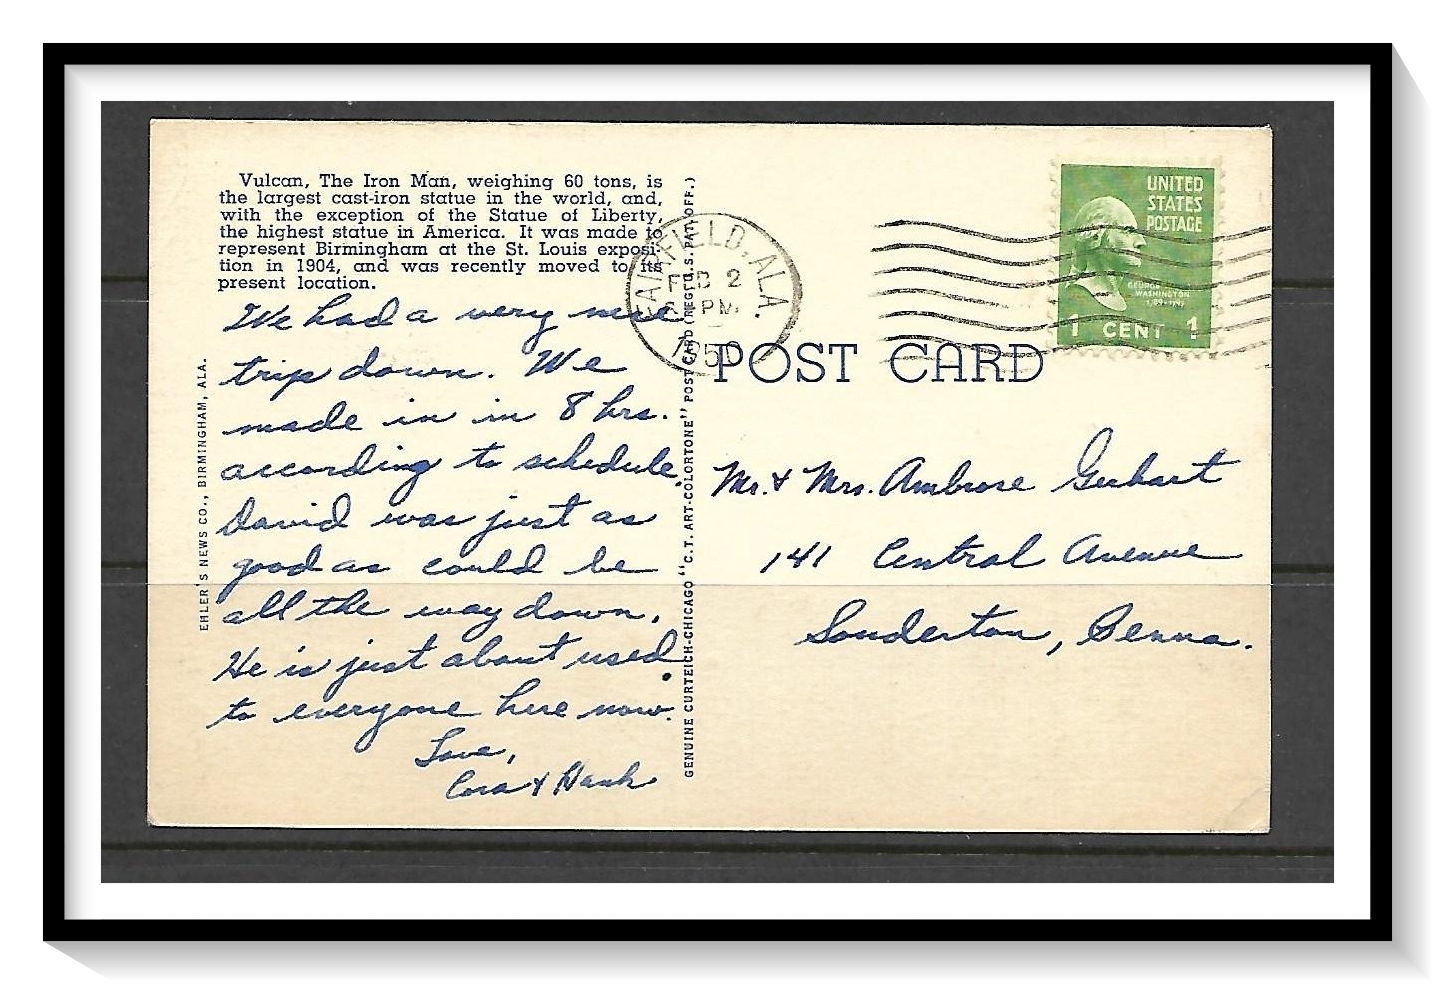 Vulcan, The Iron Man, weighing 60 tons, is
the largest cast-iron statue in the world, and,
with the exception of the Statue of Liberty,
the highest statue in America. It was made to
represent Birmingham at the St. Louis exposi-
tion in 1904, and was recently moved to its
present location.
We had a very nice
trip down. We
made in in 8 hrs.
according to schedule.
David was just as
good as could be
all the way down.
He is just about used
to everyone here now.
Love,
Cora & Hank
EHLER'S NEWS CO., BIRMINGHAM, ALA.
GENUINE CURTEICH-CHICAGO "C.T. ART-COLORTONE" POST CARD (REG. U.S. PAT. OFF.)
FAIRFIELD, ALA.
FEB 2
PM
1950
UNITED
STATES
POSTAGE
GEORGE
WASHINGTON
1789-1797
1 CENT 1
POST CARD
Mr. & Mrs. Ambrose Gerhart
141 Central Avenue
Souderton, Penna.